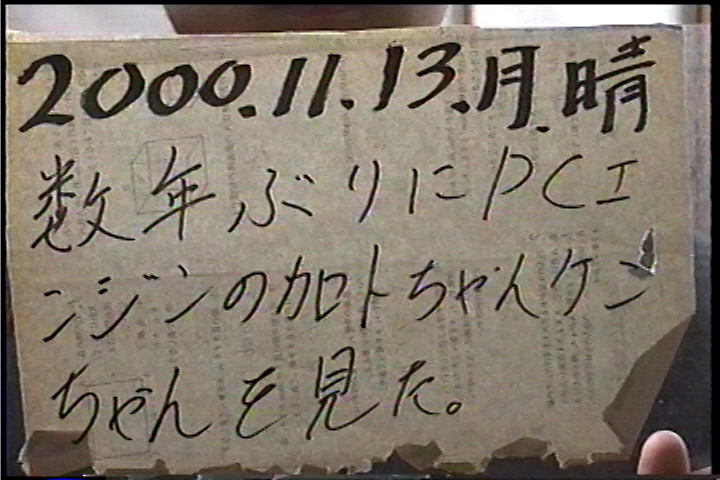 2000.11.13.月.晴
数年ぶりにPCエ
ンジンのカトちゃんケン
ちゃんを見た。